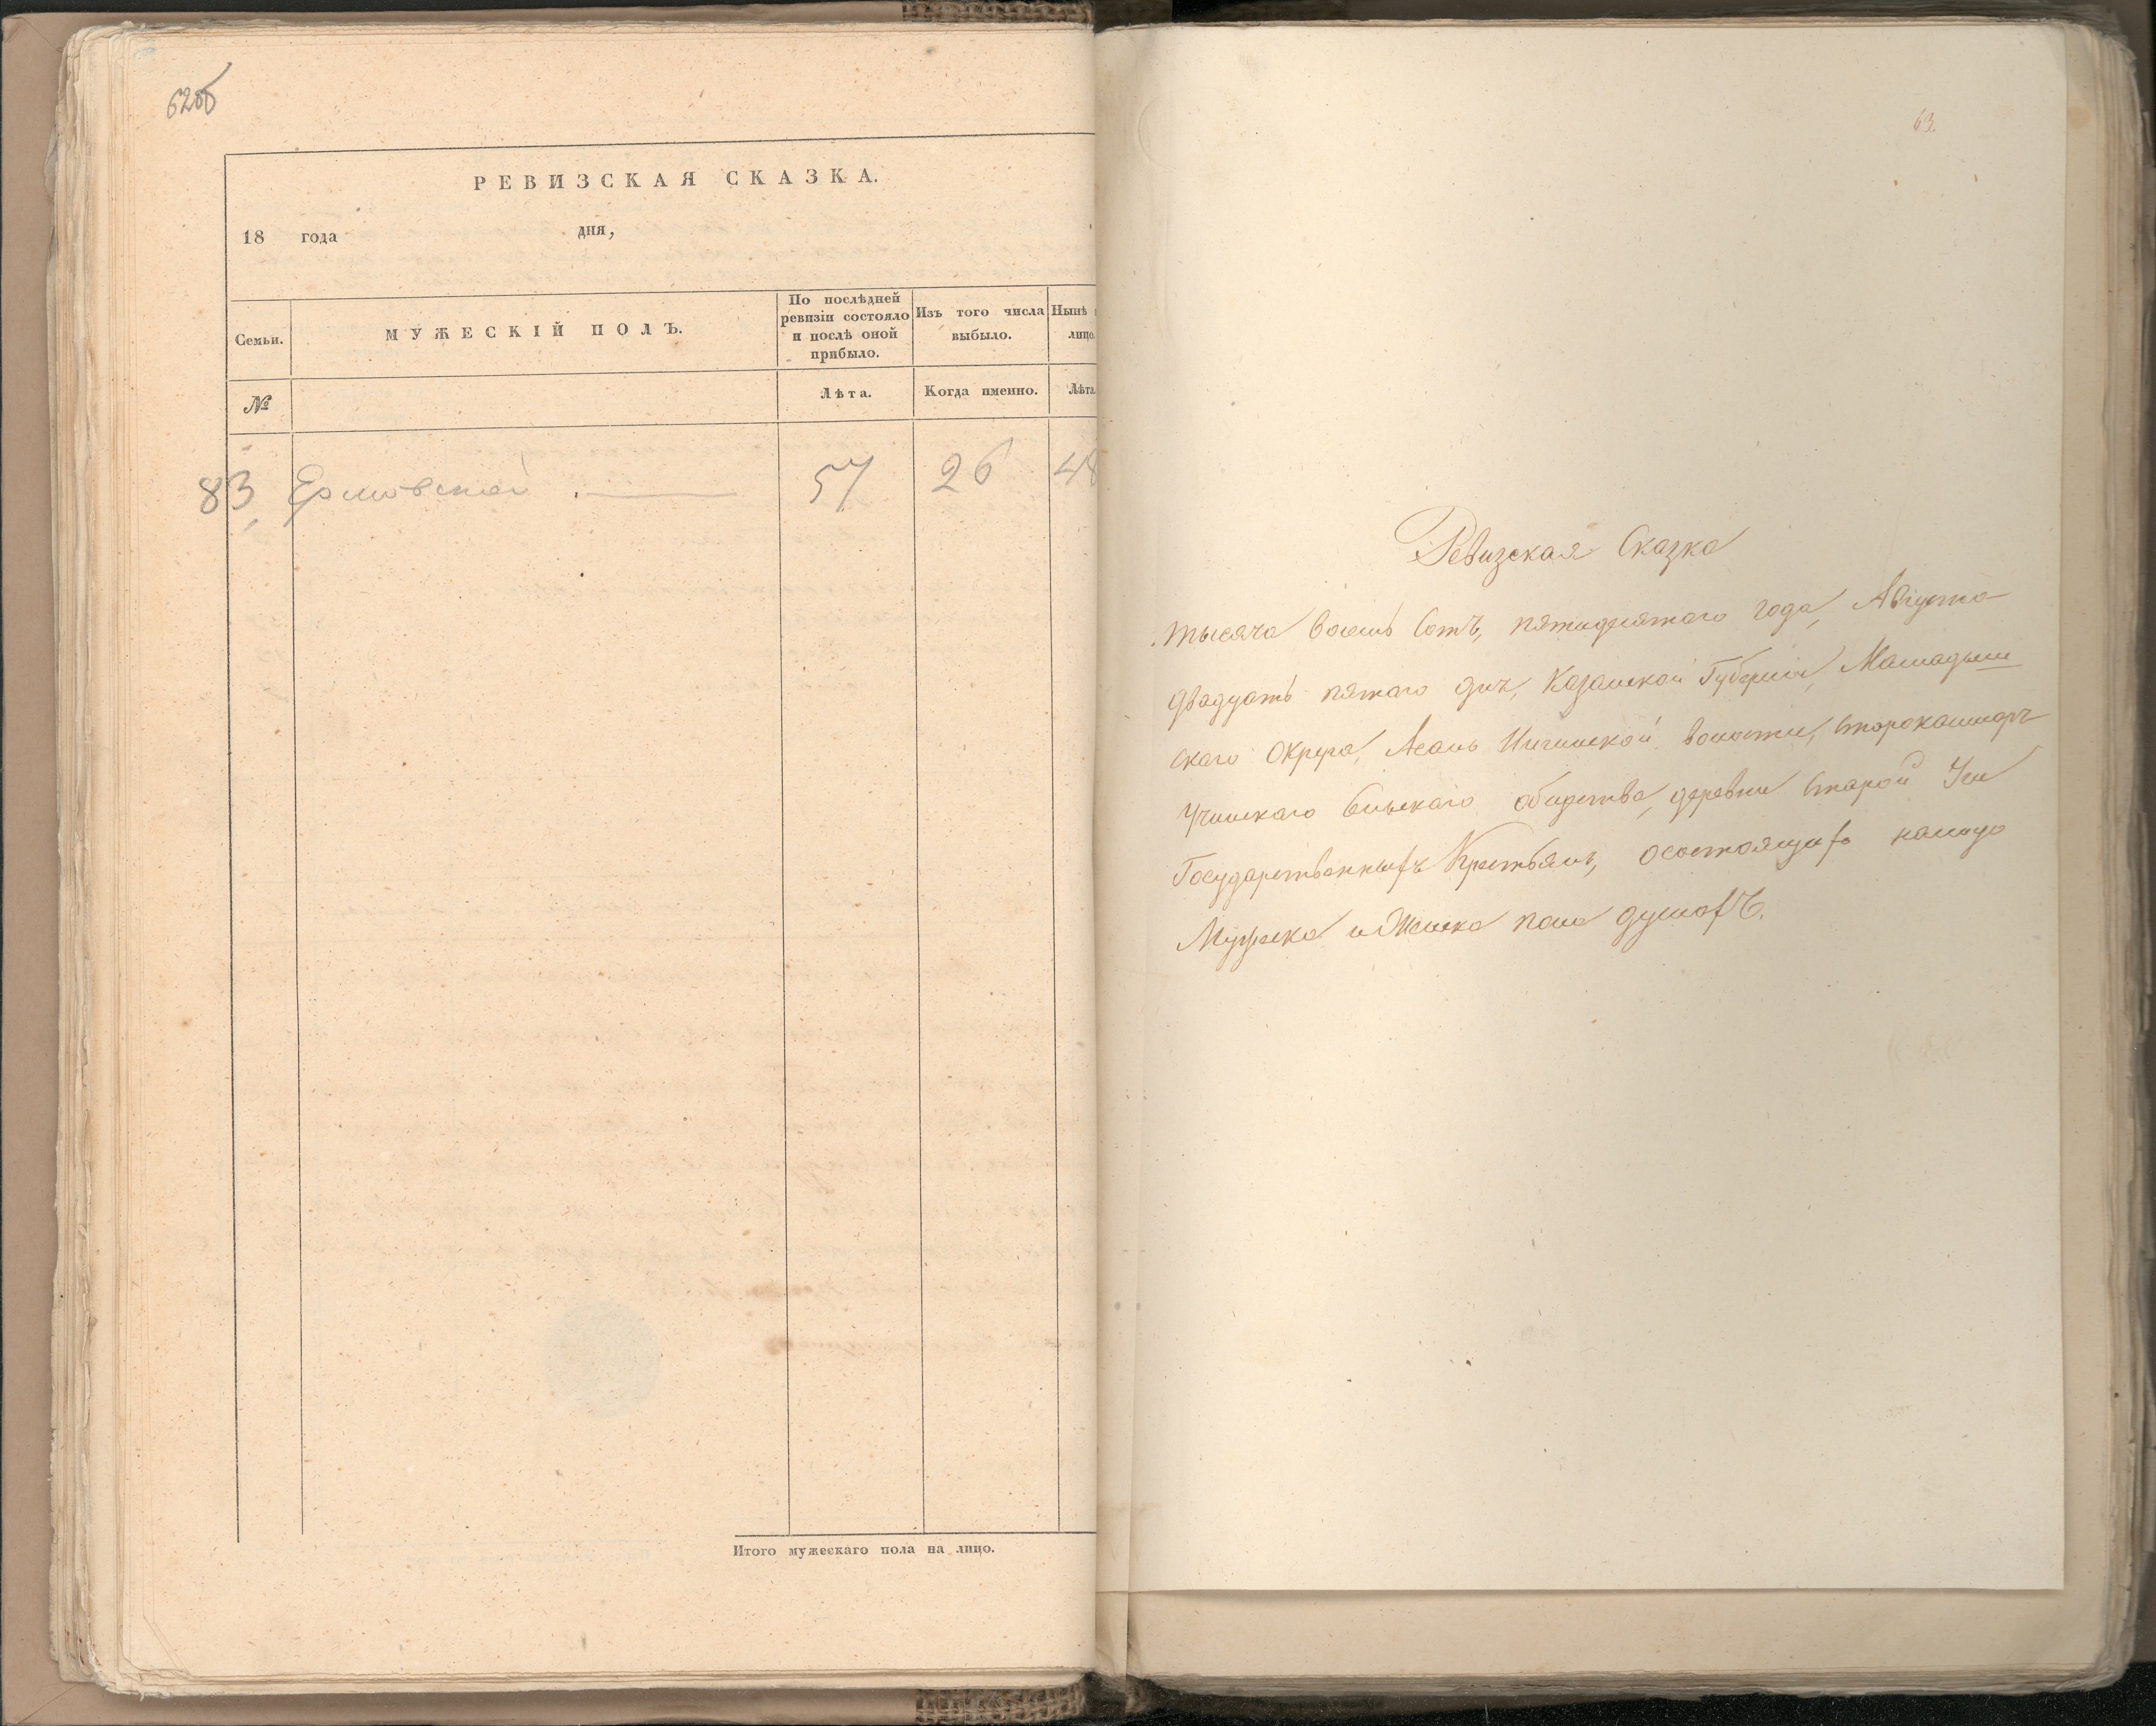 62об
РЕВИЗСКАЯ СКАЗКА.
18 года дня,
Семьи.
МУЖЕСКІЙ ПОЛЪ.
По послѣдней ревизіи состояло и послѣ оной прибыло.
Изъ того числа выбыло.
Нынѣ
лицо.
№
Лѣта.
Когда именно.
Лѣта.
83 57 26 48
Итого мужескаго пола на лицо.
63
Ревизская Сказка
тысяча восемь сотъ, пятидесятаго года, Августа
двадцать пятаго дня, Казанской Губерніи, Мамадыш
скаго Округа, Асань волости,
Учинскаго Сельскаго общества, деревни Старой Учи
Государственныхъ Крестьянъ, о состоящихъ налицо
Мужеска и Женска пола душахъ.